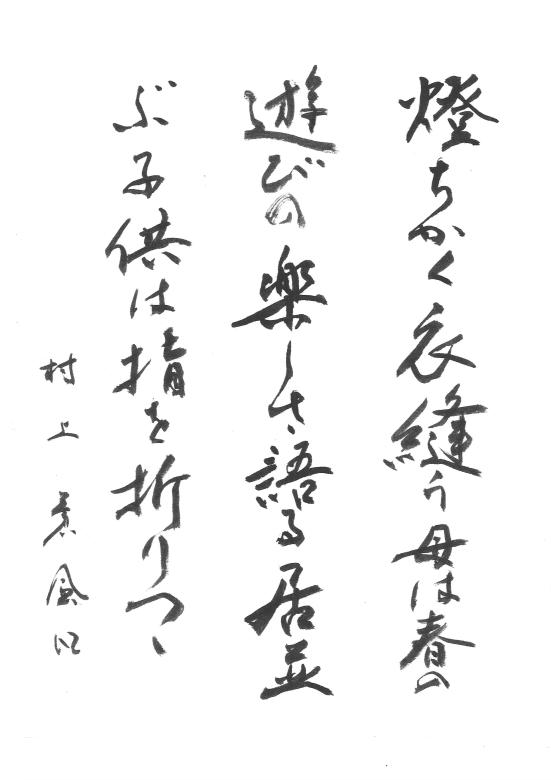 燈ちかく衣縫う母は春の
遊びの楽しさ語る居並
ぶ子供は指を折りつゝ
村上 薫風 以